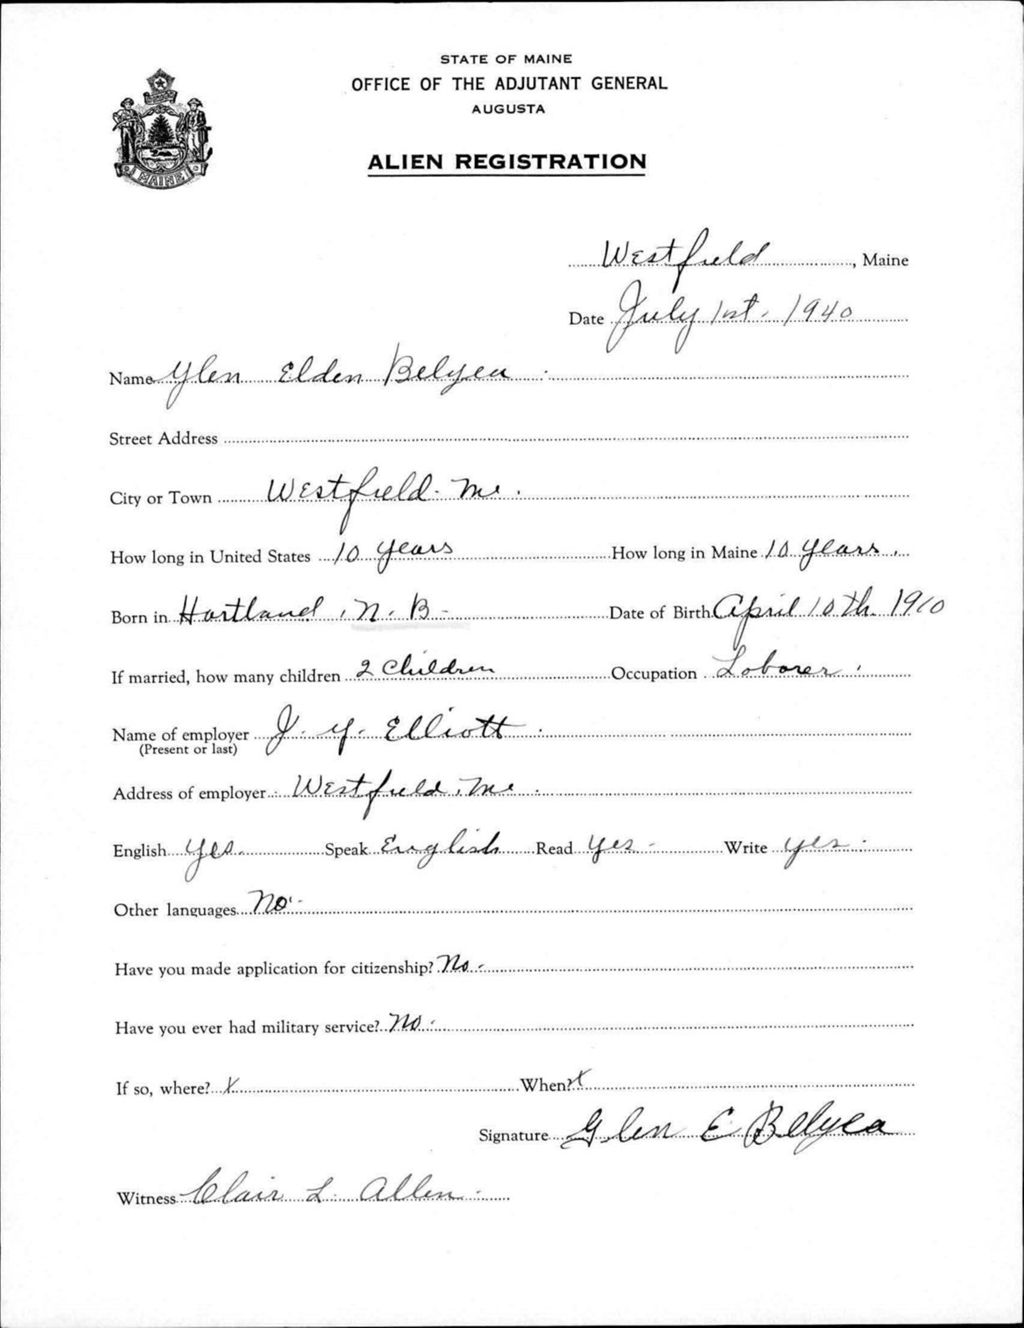 STATE OF MAINE
OFFICE OF THE ADJUTANT GENERAL
AUGUSTA
ALIEN REGISTRATION
MAINE
Westfield, Maine
Date July 1st, 1940
Name Glen Elden Belyea
Street Address
City or Town Westfield. Me.
How long in United States 10 years How long in Maine 10 years.
Born in Hartland, N.B. Date of Birth April 10th. 1910
If married, how many children 2 Children Occupation Laborer.
Name of employer J. Y. Elliott
(Present or last)
Address of employer Westfield, Me.
English Yes. Speak English Read yes Write yes
Other languages No
Have you made application for citizenship? No.
Have you ever had military service? No.
If so, where? X When? X
Signature Glen E Belyea
Witness Clair L. Allen